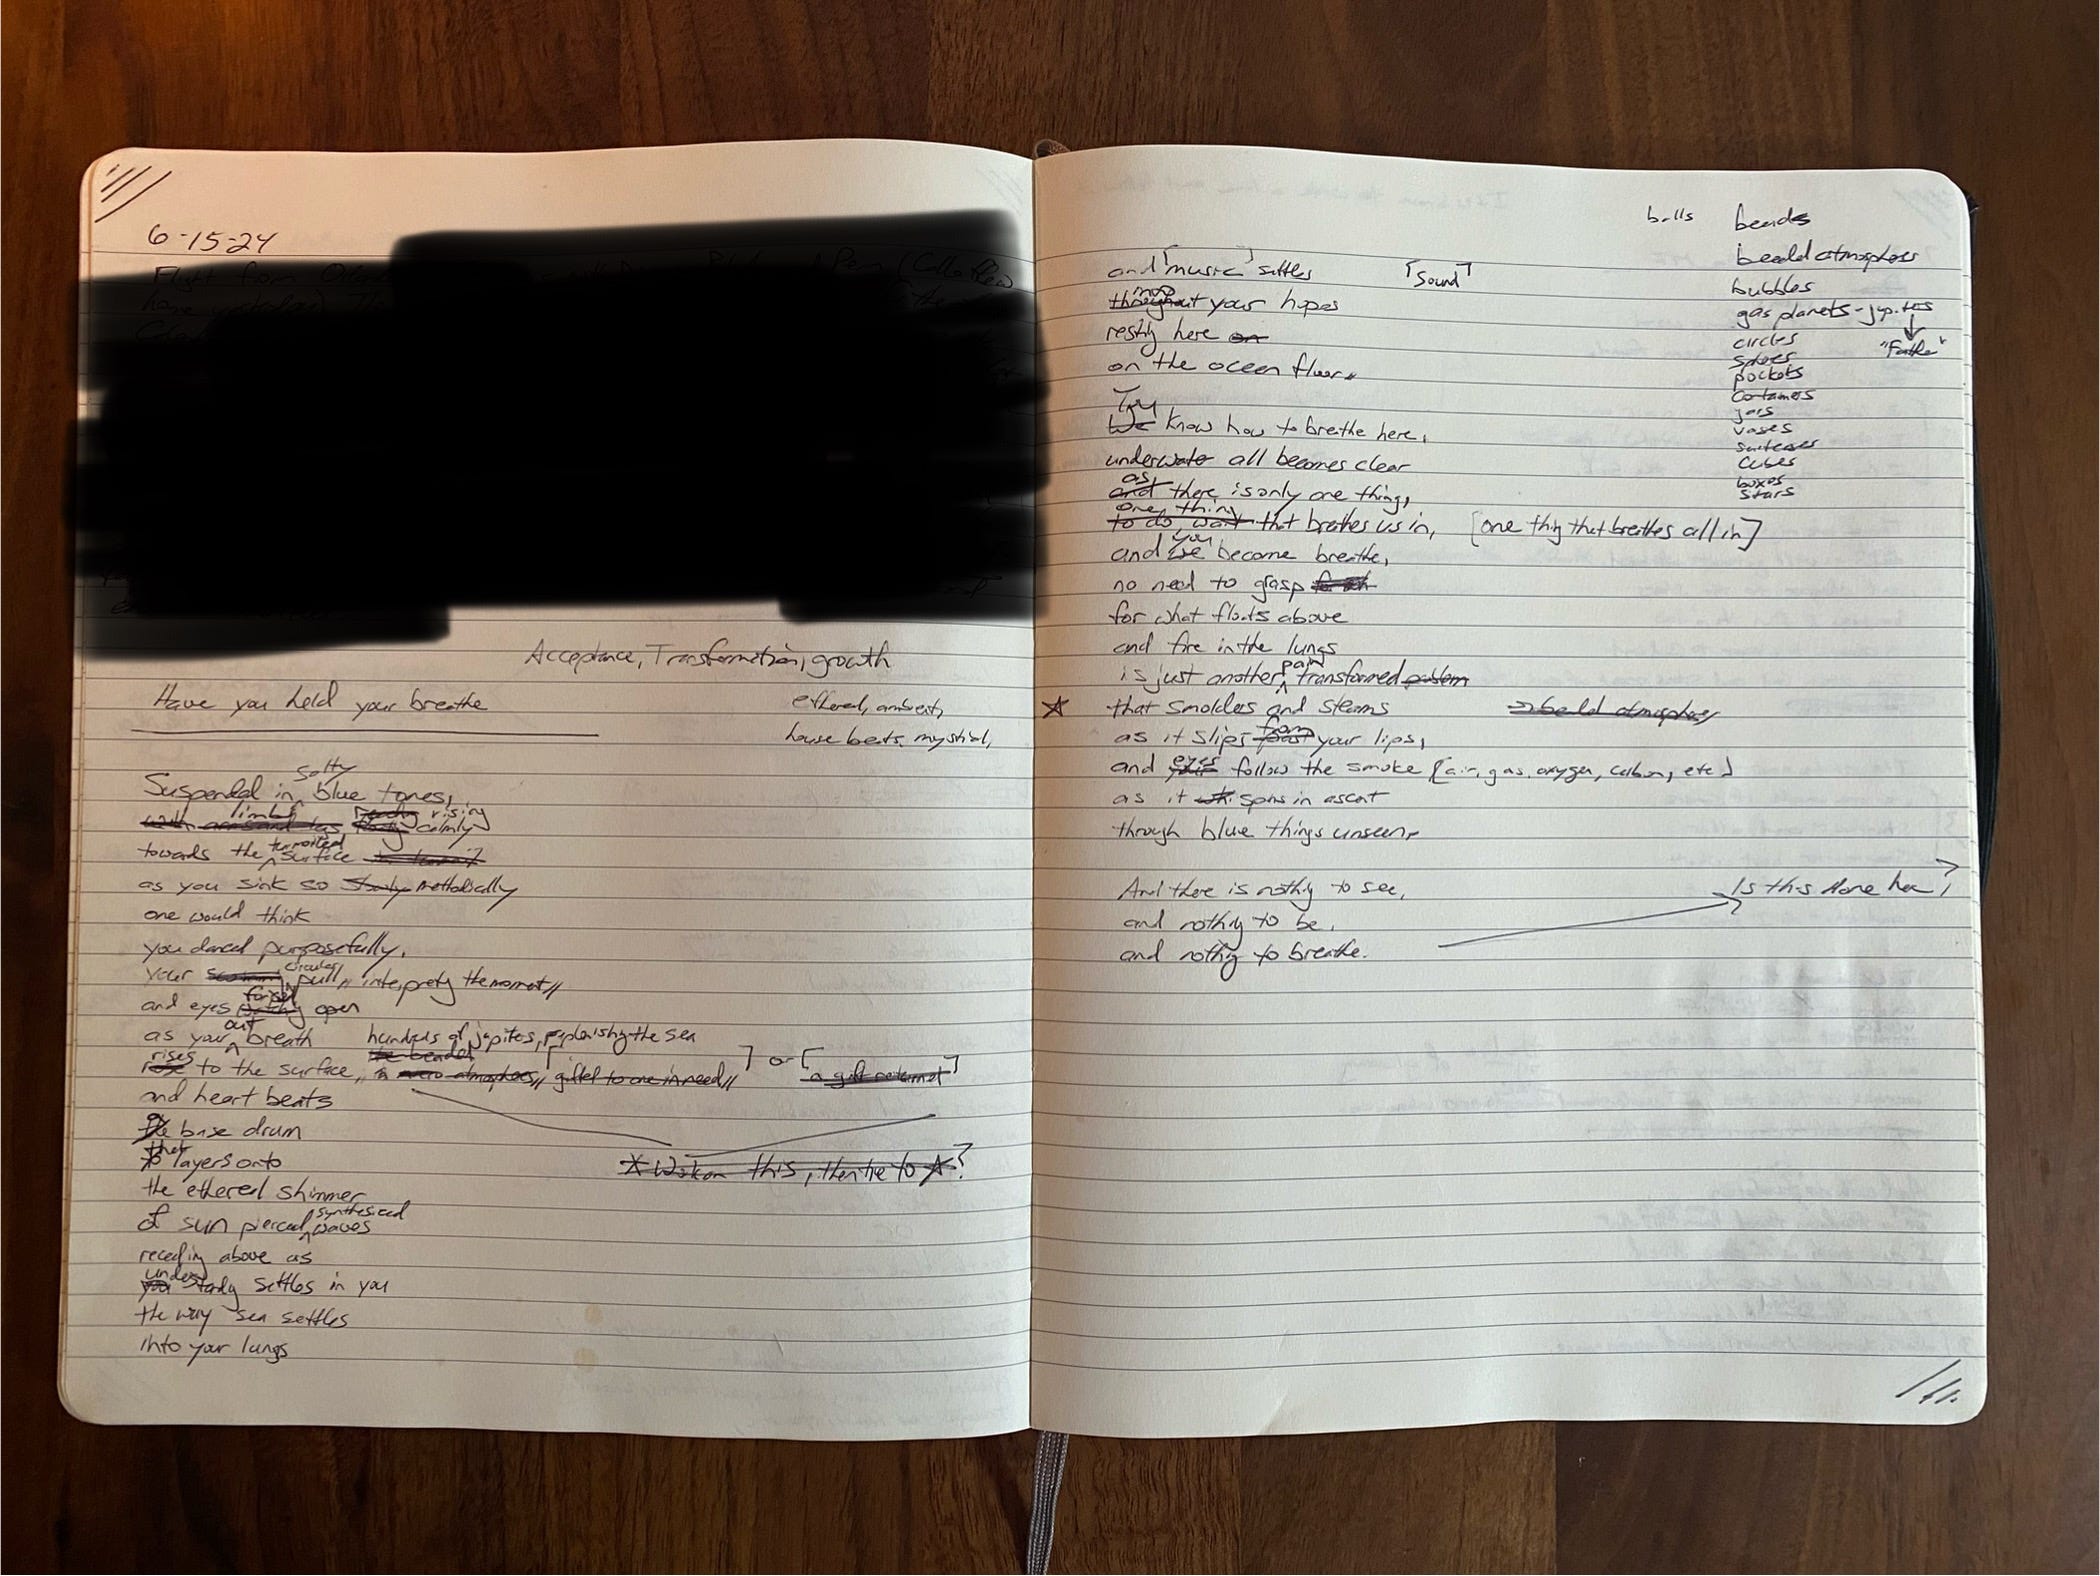 6-15-24
Flight from
Acceptance, Transformation, growth
Have you held your breathe
ethereal, ambient,
house beats, mystical,
Suspended in salty blue tones,
with arms and legs limbs floating rising calmly
towards the surface
as you sink so slowly methodically
one would think
you danced purposefully,
your circular pull, interpreting the moment//
and eyes forced open
as your out breath hundreds of jupiters, replenishing the sea
rose rises to the surface, the beaded micro atmospheres// [gifted to one in need//] or [a gift returned]
and heart beats
the a base drum
to that layers onto
the ethereal shimmer
of sun pierced synthesized waves
*Work on this, then tie to ☆?
receding above as
you understandy settles in you
the way sea settles
into your lungs
balls beads
beaded atmospheres
bubbles
gas planets - jupiters
circles
"Father"
pockets
containers
jars
vases
suitcases
cubes
boxes
stars
and [music] settles [sound]
throughout your hopes
resting here on
on the ocean floor//
We You know how to breathe here,
underwater all becomes clear
and as there is only one thing,
to do, want one thing that breathes us in, [one thing that breathes all in]
and we you become breathe,
no need to grasp
for what floats above
and fire in the lungs
is just another pain transformed problem
☆ that smolders and steams beaded atmospheres
as it slips past from your lips,
and your eyes follow the smoke [air, gas, oxygen, carbon, etc]
as it spins in ascent
through blue things unseen,
And there is nothing to see,
and nothing to be,
and nothing to breathe.
Is this done here?